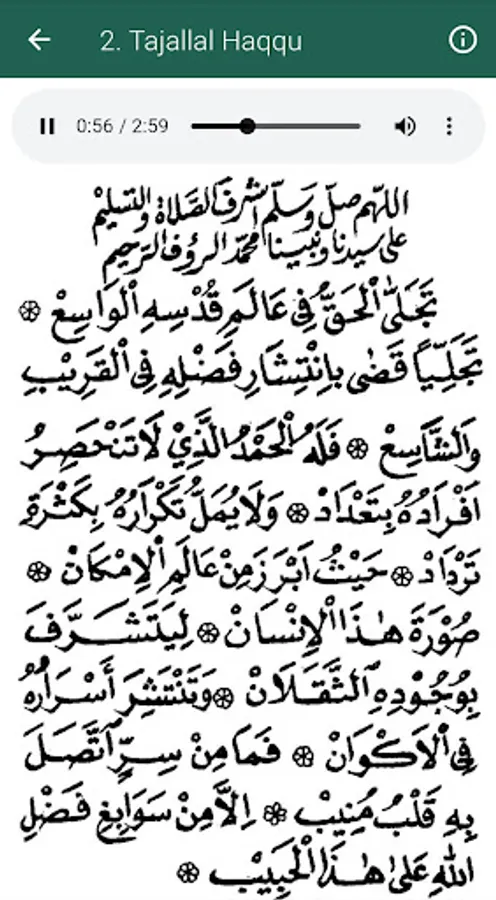 2. Tajallal Haqqu
0:56 / 2:59
اللهم صل وسلم اشرف الصلاة والتسليم
على سيدنا ونبينا محمد الرؤف الرحيم
تَجَلَّى الْحَقُّ فِي عَالَمِ قُدْسِهِ الْوَاسِعْ ۞
تَجَلِّيًا قَضَى بِانْتِشَارِ فَضْلِهِ فِي الْقَرِيْبِ
وَالشَّاسِعْ ۞ فَلَهُ الْحَمْدُ الَّذِيْ لَا تَنْحَصِرُ
اَفْرَادُهُ بِتَعْدَادْ ۞ وَلَا يُمَلُّ تَكْرَارُهُ بِكَثْرَةِ
تَرْدَادْ ۞ حَيْثُ اَبْرَزَ مِنْ عَالَمِ الْاِمْكَانْ ۞
صُوْرَةَ هٰذَا الْاِنْسَانْ ۞ لِيَتَشَرَّفَ
بِوُجُوْدِهِ الثَّقَلَانْ ۞ وَتَنْتَشِرَ أَسْرَارُهُ
فِي الْاَكْوَانْ ۞ فَمَا مِنْ سِرٍّ اتَّصَلَ
بِهِ قَلْبُ مُنِيْبْ ۞ اِلَّا مِنْ سَوَابِغِ فَضْلِ
اللهِ عَلَى هٰذَا الْحَبِيْبْ ۞